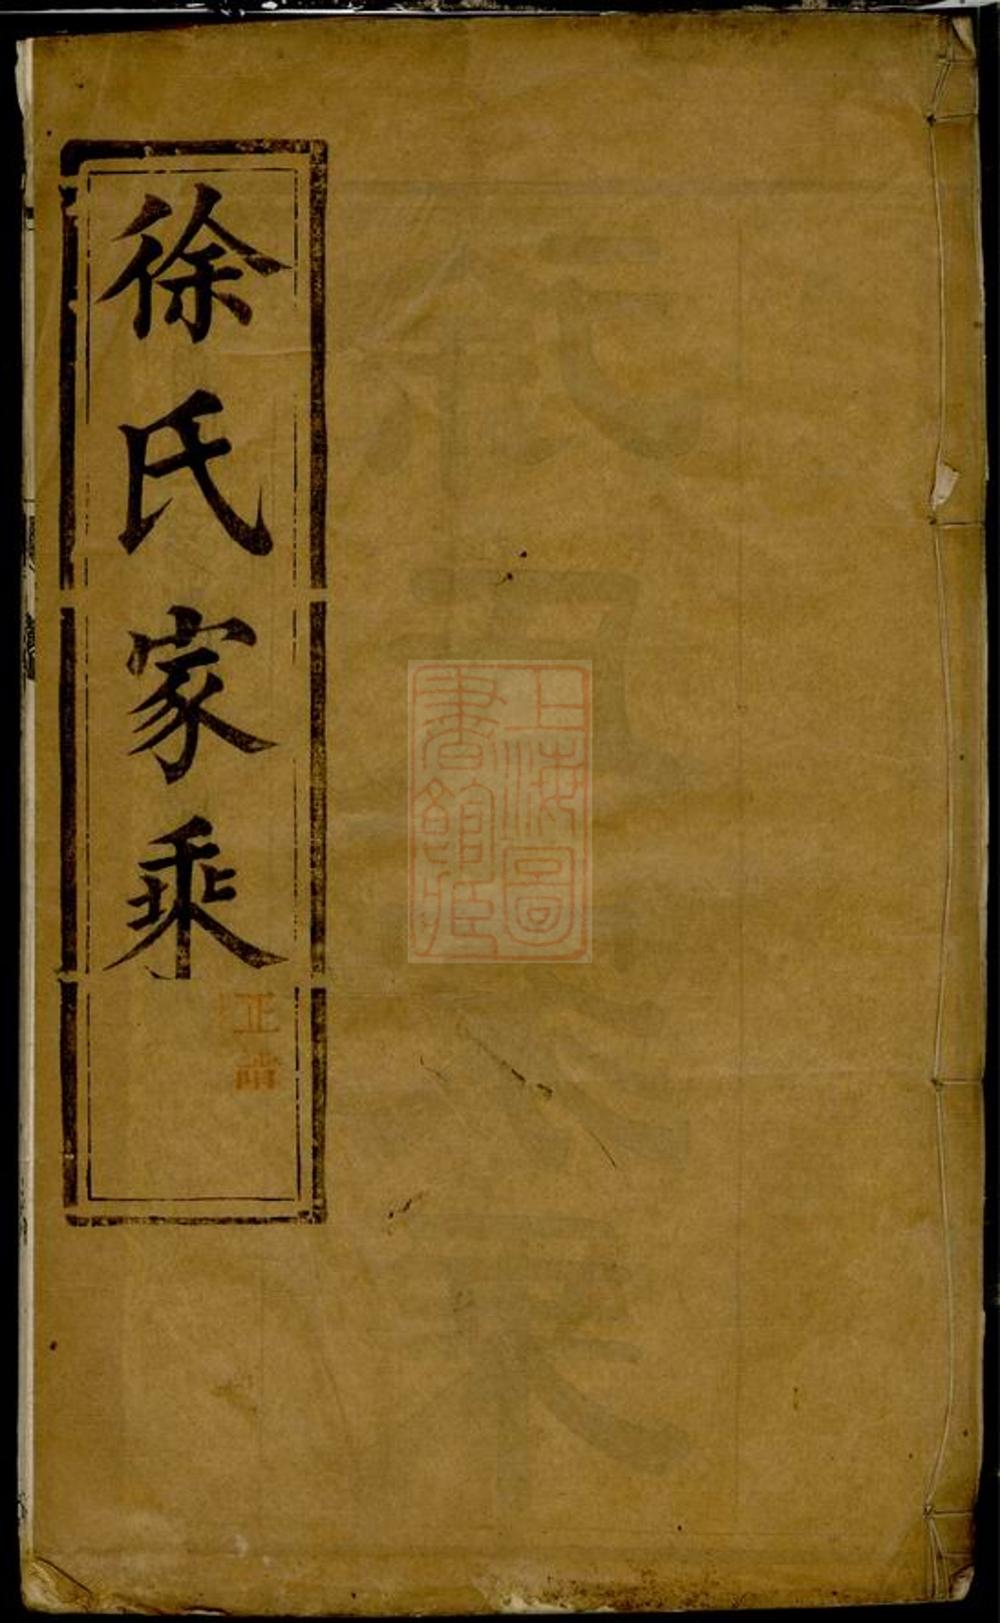 徐氏家乘
正當
上海圖
書館臧